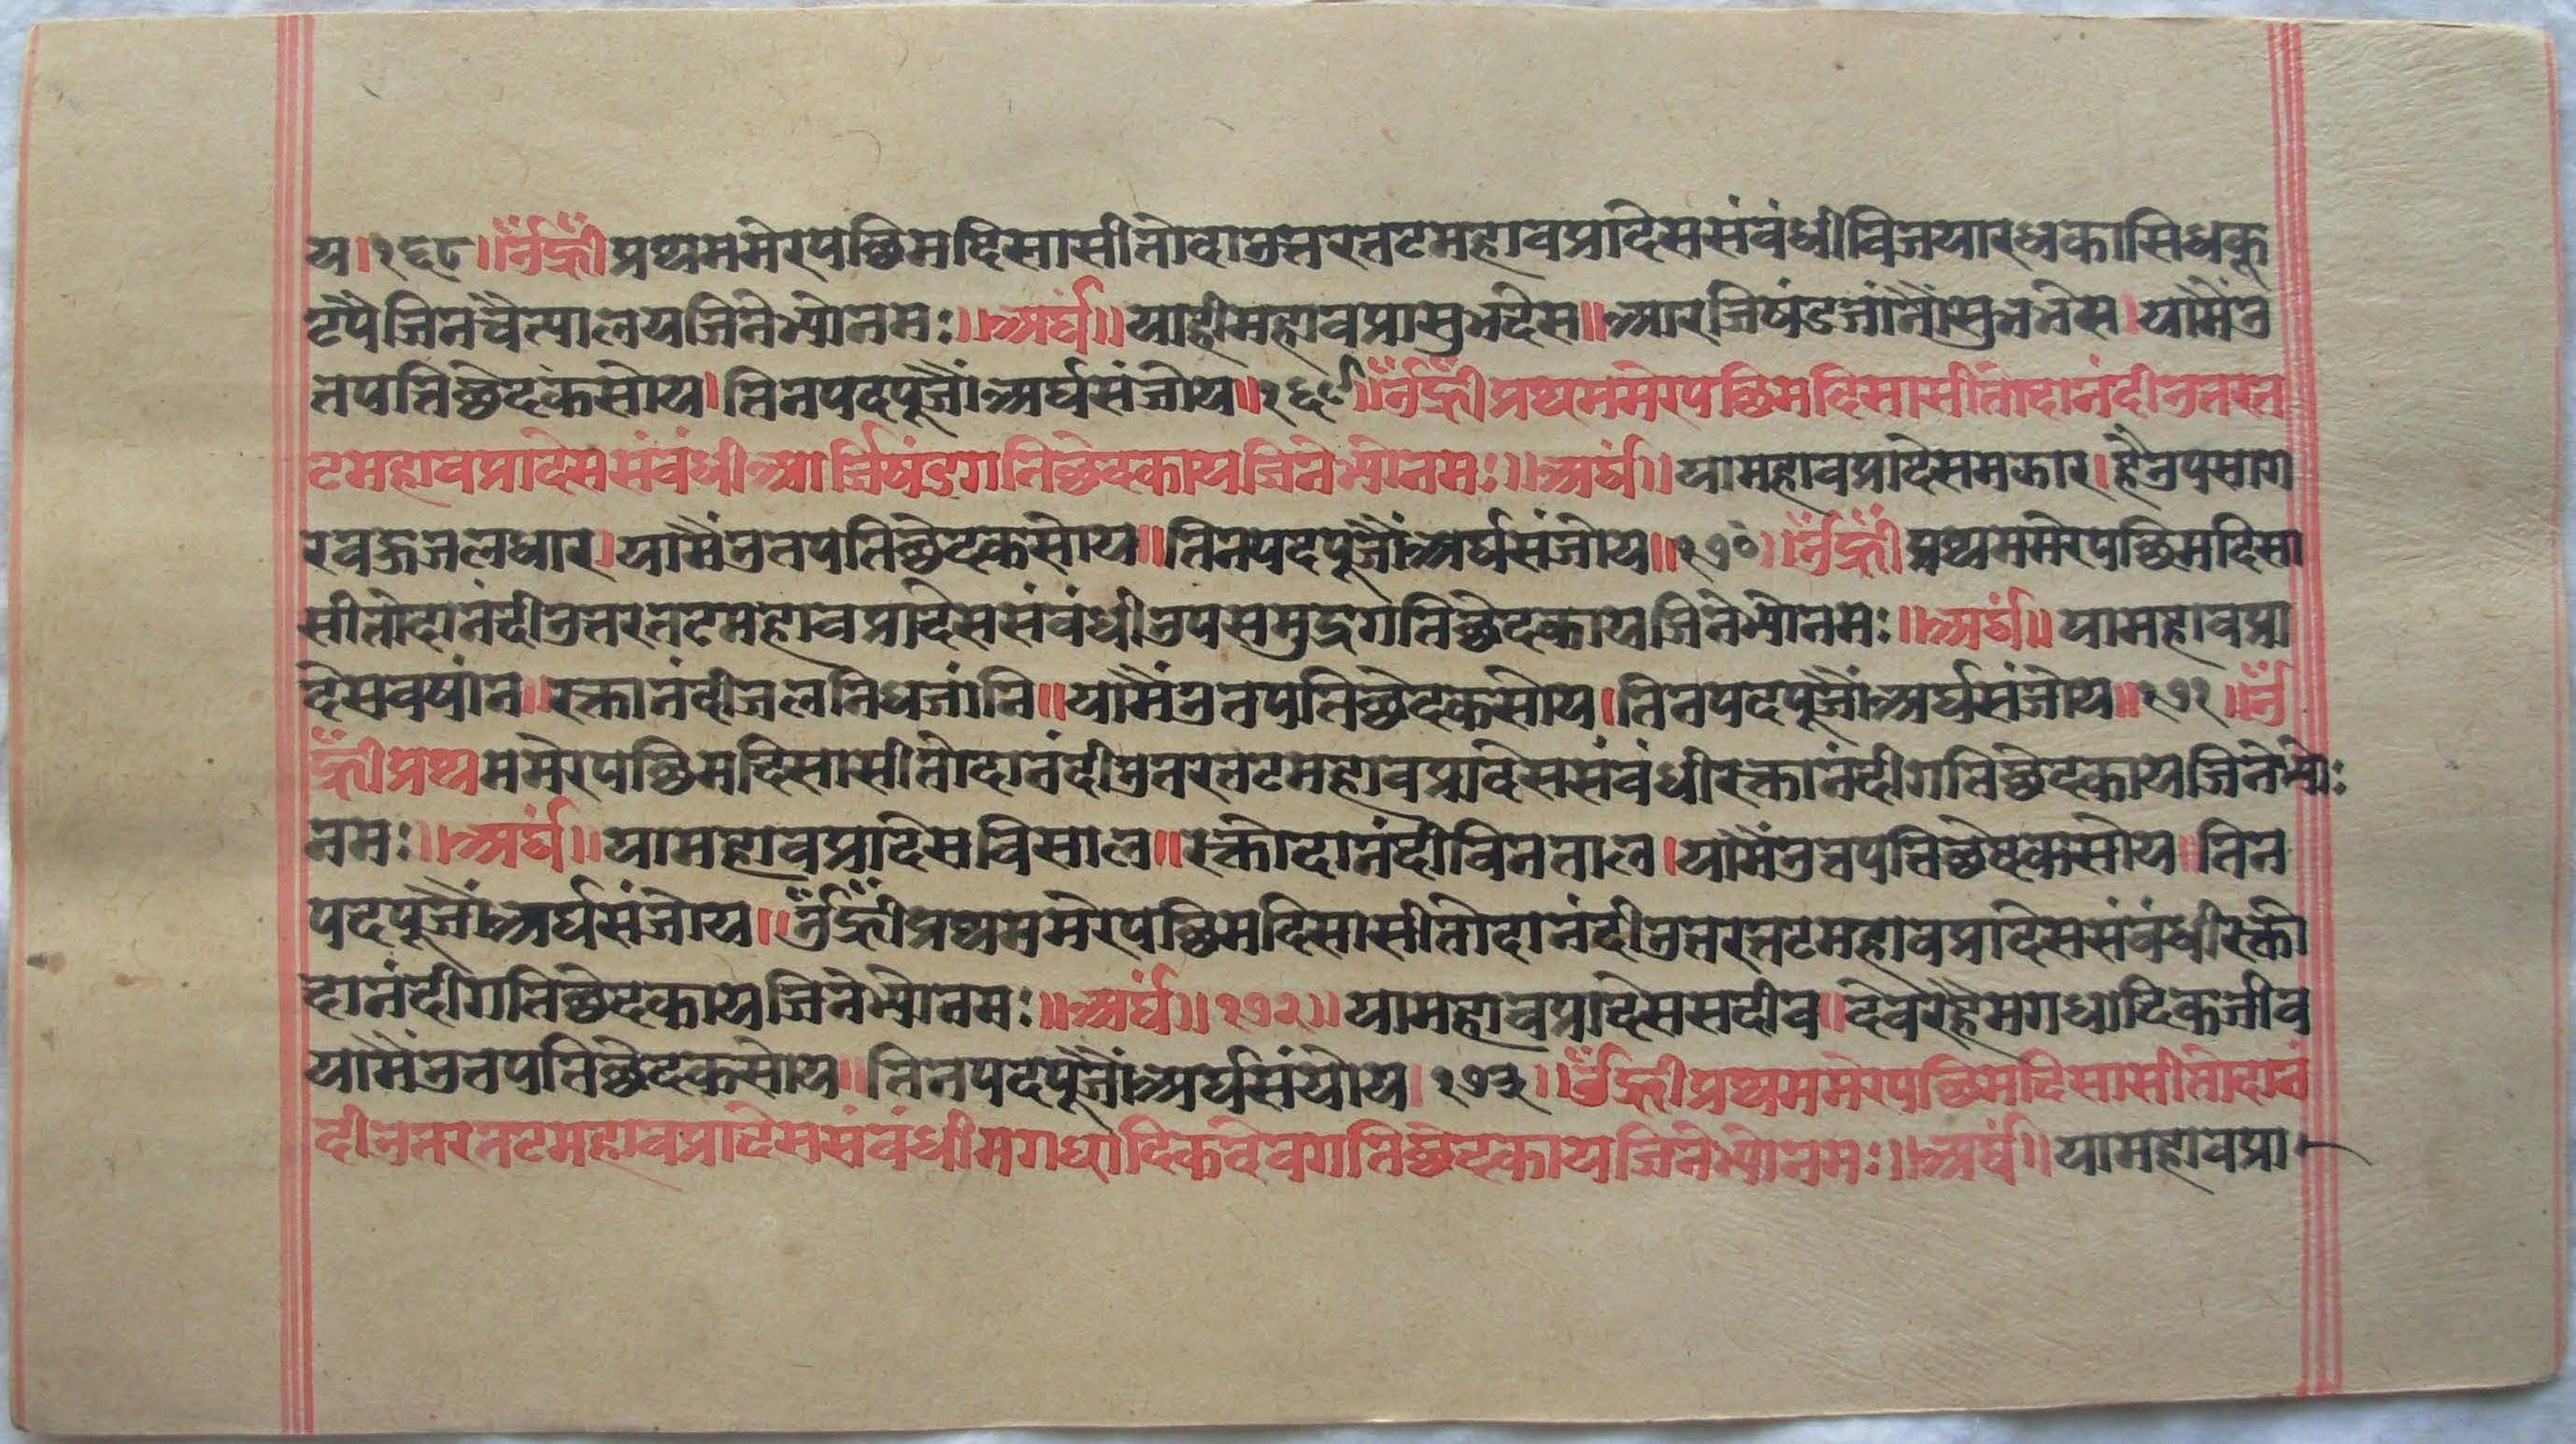 य।१६८।ॐह्रीँप्रथममेरपछिमदिसासीतोदाउत्तरतटमहावप्रादेससंबंधीविजयारधकासिधकू
टपैजिनचैत्यालयजिनेभ्योनमः॥अर्घं॥याहीमहावप्रासुभदेस॥आरजिषंडजांनौंसुनतेस।यामैंउ
तपतिछेदकसोय।तिनपदपूजौंअर्घसंजोय॥१६९॥ॐह्रीँप्रथममेरपछिमदिसासीतोदानंदीउतरत
टमहावप्रादेससंबंधीआर्जिषंडगतिछेदकायजिनेभ्योनमः॥अर्घं॥यामहावप्रादेसमझार।हैउपसाग
रवज्जलधार।यामैंउतपतिछेदकसोय॥तिनपदपूजौंअर्घसंजोय॥१७०॥ॐह्रीँप्रथममेरपछिमदिसा
सीतोदानंदीउत्तरतटमहावप्रादेससंबंधीउपसमुद्रगतिछेदकायजिनेभ्योनमः॥अर्घं॥यामहावप्रा
देसवषांन॥रक्तानंदीजलनिधजांनि॥यामैंउतपतिछेदकसोय।तिनपदपूजौंअर्घसंजोय॥१७१॥ॐ
ह्रीँप्रथममेरपछिमदिसासीतोदानंदीउतरतटमहावप्रादेससंबंधीरक्तानंदीगतिछेदकायजिनेभ्योः
नमः॥अर्घं॥यामहावप्रादेसविसाल॥रक्तोदानंदीविनताल।यामैंउतपतिछेदकसोय॥तिन
पदपूजौंअर्घसंजोय॥ॐह्रीँप्रथममेरपछिमदिसासीतोदानंदीउतरतटमहावप्रादेससंबंधीरक्तो
दानंदीगतिछेदकायजिनेभ्योनमः॥अर्घं॥१७२॥यामहावप्रादेससदीव॥देवरहैमगधादिकजीव
यामैंउतपतिछेदकसोय॥तिनपदपूजौंअर्घसंयोय।१७३॥ॐह्रीँप्रथममेरपछिमदिसासीतोदानं
दीउतरतटमहावप्रादेससंबंधीमगधादिकदेवगतिछेदकायजिनेभ्योनमः॥अर्घं॥यामहावप्रा